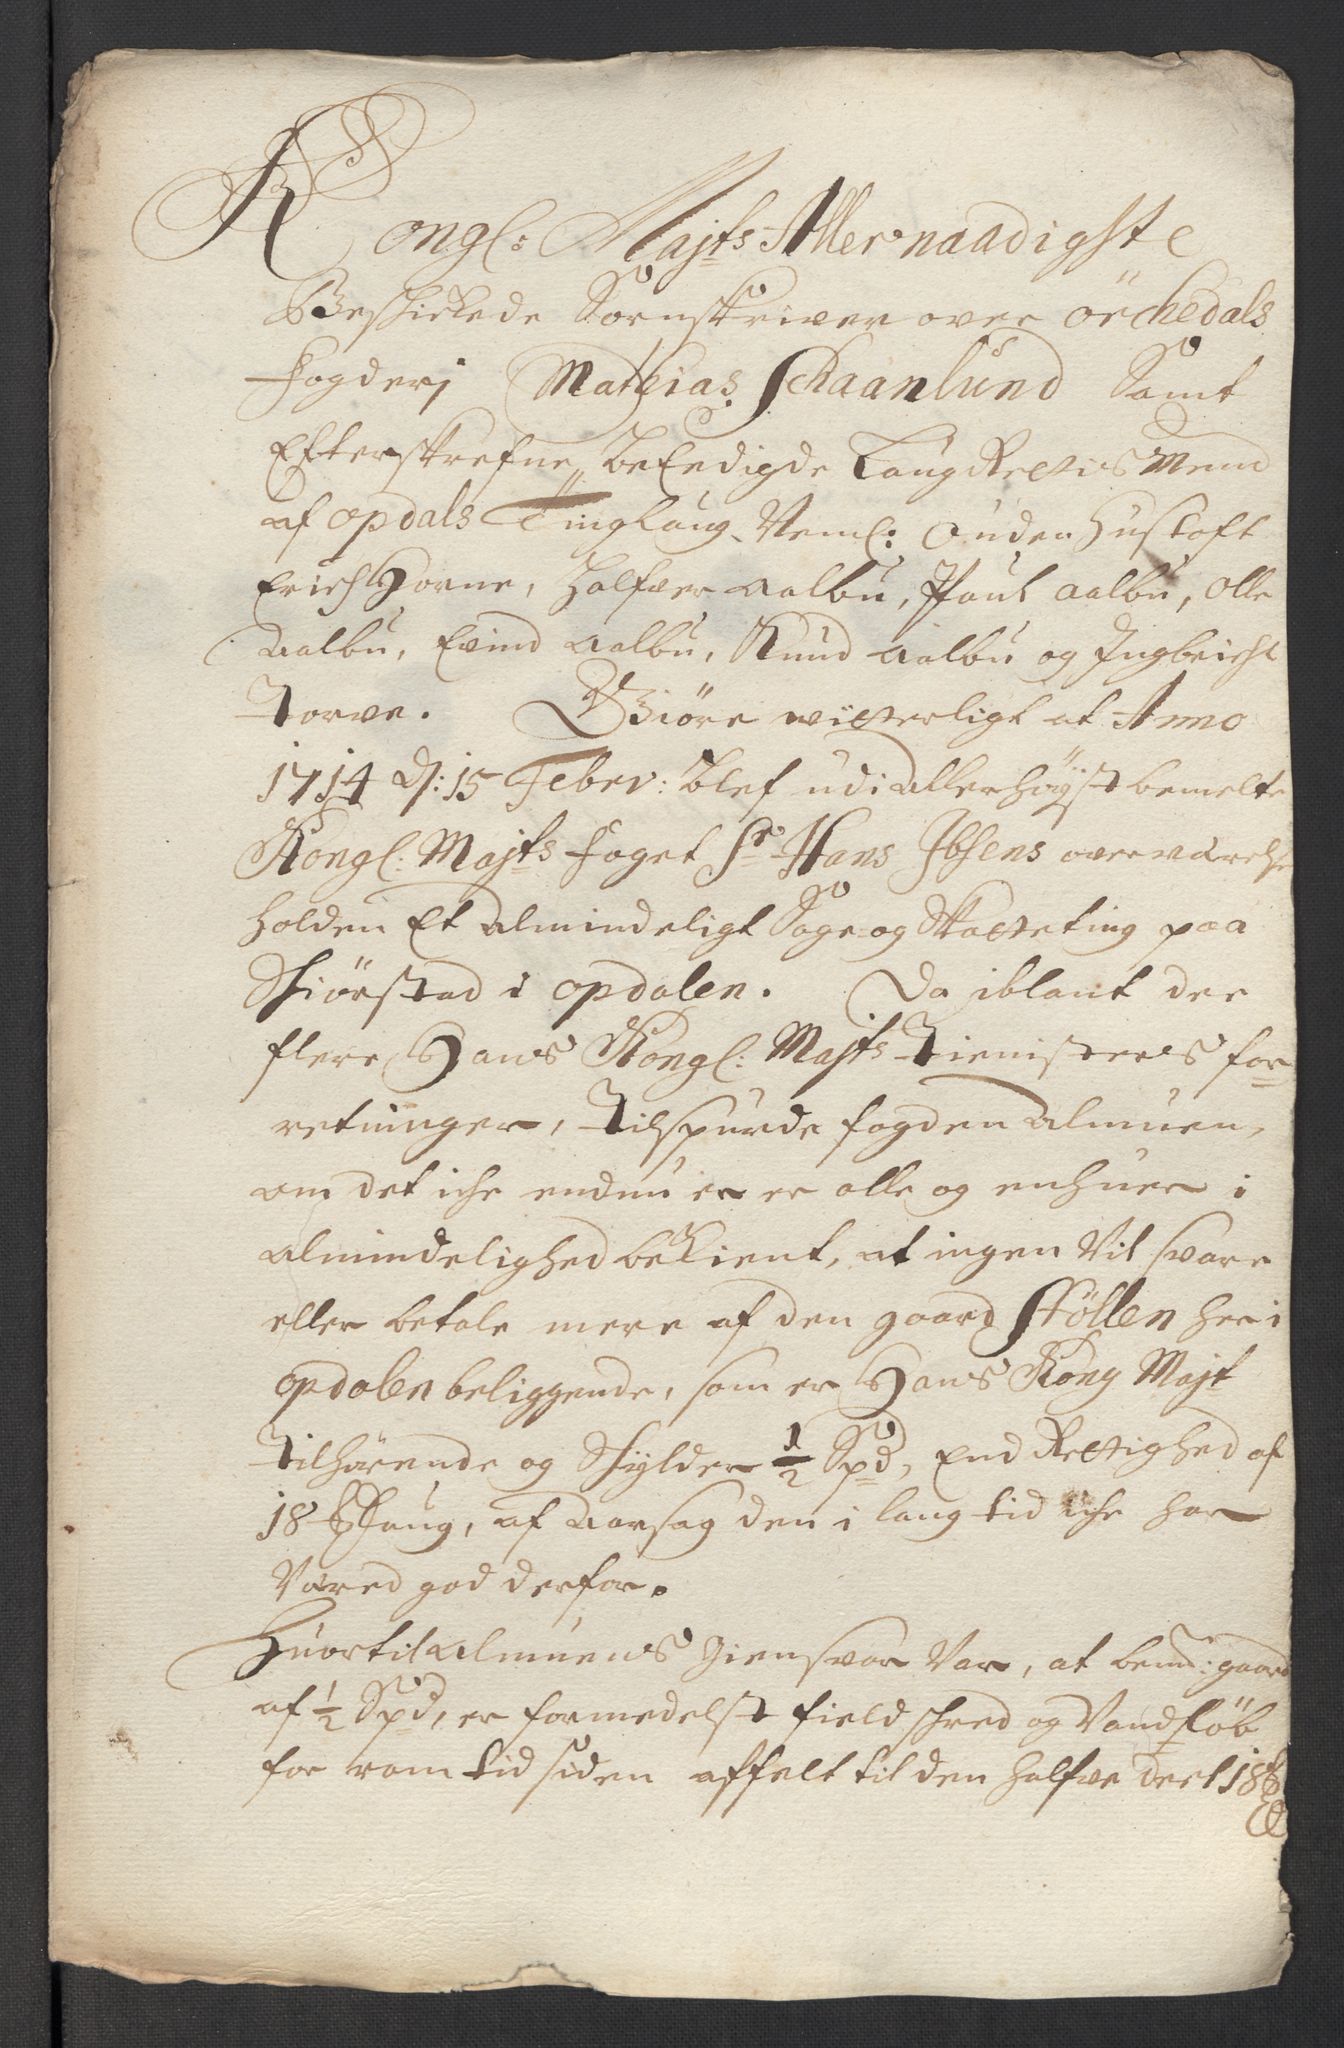 Kongl: Majts Allernaadigste
Beskickede Sornskriver over örchedals
Fogderj Mathias Schaanlund Samt
Efterskrefne beEedigde LaugRettis Mend
af opdals Tinglaug, Neml: Ouden Hustoft
Erich Horne, Halfver Aalbu, Paul Aalbu, Olle
Aalbu, Evind Aalbu, Knud Aalbu og Ingbricht
Torve. Giöre witterligt at Anno
1714 d: 15 Febrv: blef udi allerhöyst bemelte
Kongl: Majts Foget Sr Hans Ibsens overværelse
holden Et almindeligt Sage og Skatteting paa
Schiörstad i opdalen. Da iblant der
flere Hans Kongl: Majts Tienisteris for-
retninger, Tilspurde fogden Almuen,
om det iche endnu er er alle og enhuer i
almindelighed beKient, at ingen Vil svare
eller betale mere af den gaard Stöllen her i
opdalen beliggende, som er Hans Kong Majt
Tilhörende og Schylder 1/2 Spd, End Rettighed af
18 Marg, af Aarsag den i lang tid iche har
Været god derfor.
Huortil Almuens Giensvar Var, at bemte: gaard
af 1/2 Spd, er formedelst field schred og Vandflöb
for rom tid siden affelt til den halfve deel 18